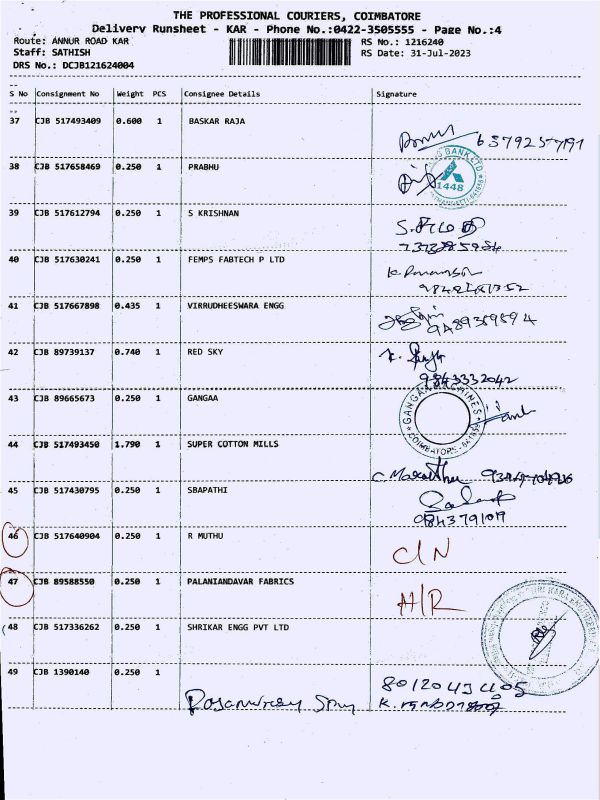 THE PROFESSIONAL COURIERS, COIMBATORE
Delivery Runsheet - KAR - Phone No.:0422-3505555 - Page No.:4
Route: ANNUR ROAD KAR RS No.: 1216240
Staff: SATHISH RS Date: 31-Jul-2023
DRS No.: DCJB121624004
S No Consignment No Weight PCS Consignee Details Signature
37 CJB 517493409 0.600 1 BASKAR RAJA
38 CJB 517658469 0.250 1 PRABHU
BANK LTD
1448
39 CJB 517612794 0.250 1 S KRISHNAN
40 CJB 517630241 0.250 1 FEMPS FABTECH P LTD
41 CJB 517667898 0.435 1 VIRRUDHEESWARA ENGG
42 CJB 89739137 0.740 1 RED SKY
9843332042
43 CJB 89665673 0.250 1 GANGAA
COIMBATORE
44 CJB 517493450 1.790 1 SUPER COTTON MILLS
45 CJB 517430795 0.250 1 SBAPATHI
46 CJB 517640904 0.250 1 R MUTHU
C/N
47 CJB 89588550 0.250 1 PALANIANDAVAR FABRICS
A/R
48 CJB 517336262 0.250 1 SHRIKAR ENGG PVT LTD
49 CJB 1390140 0.250 1